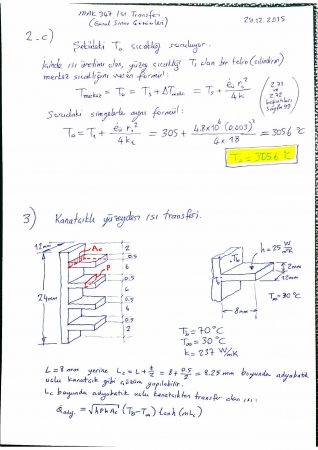 MAK 347 Isı Transferi
(Genel Sınav Çözümleri)
29.12.2015
2-c)
Şekildeki T₀ sıcaklığı soruluyor.
İçinde ısı üretimi olan, yüzey sıcaklığı Tₛ olan bir telin (silindirin)
merkez sıcaklığını veren formül:
T_merkez = T₀ = Tₛ + ΔT_mak. = Tₛ + ė₀ r₀² / 4k
(2.71 ve 2.72 bağıntıları Sayfa 99)
Sorudaki simgelerle aynı formül:
T₀ = T₁ + ė₀ r₀² / 4k_t = 305 + 4.8×10⁶ (0.003)² / 4×18 = 305.6 °C
T₀ = 305.6 °C
3) Kanatçıklı yüzeyden ısı transferi.
12mm
A₀
2
0.5
6
0.5
6
0.5
6
0.5
2
24mm
P
h = 25 W/m²K
T_b
2mm
12mm
8mm
T∞ = 30 °C
T_b = 70 °C
T∞ = 30 °C
k = 237 W/mK
L = 8 mm yerine L_c = L + t/2 = 8 + 0.5/2 = 8.25 mm boyunda adyabatik
uçlu kanatçık gibi çözüm yapılabilir.
L_c boyunda adyabatik uçlu kanatçıktan transfer olan ısı:
Q_ady. = √hPkA_c (T_b - T∞) tanh (mL_c)